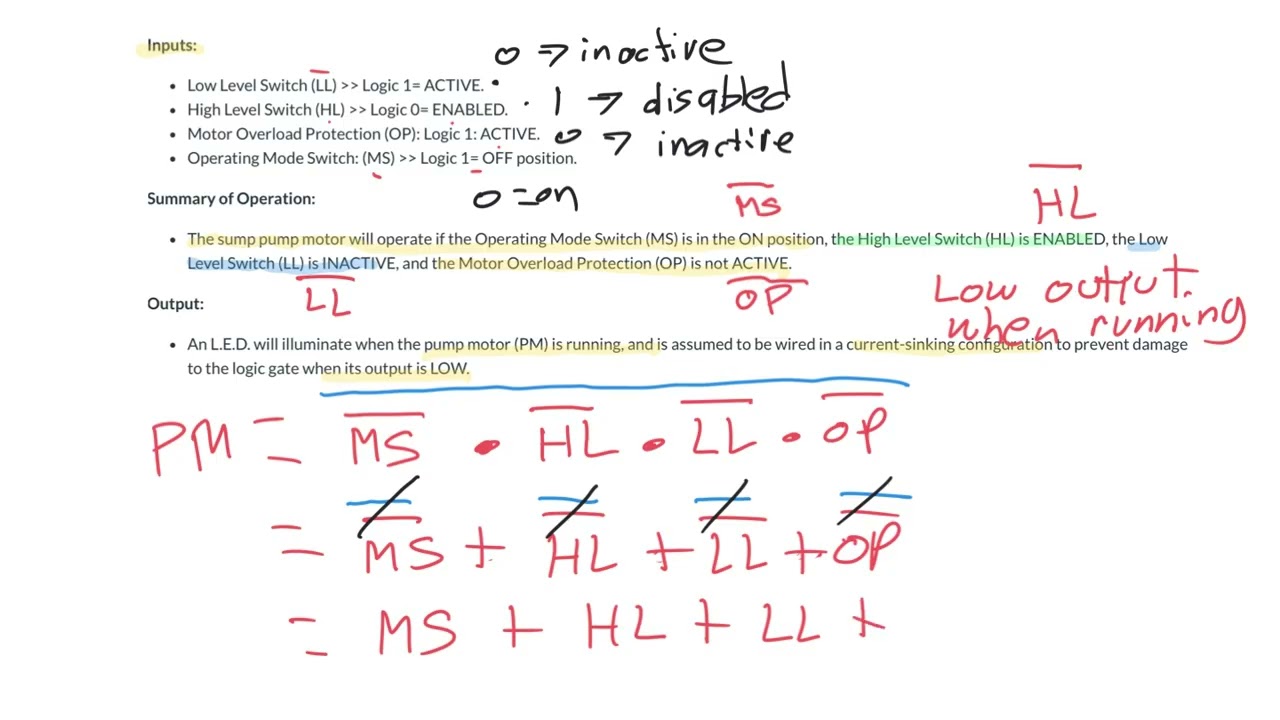 Inputs:
0 → inactive
• Low Level Switch (LL) >> Logic 1= ACTIVE.
• High Level Switch (HL) >> Logic 0= ENABLED. · 1 → disabled
• Motor Overload Protection (OP): Logic 1: ACTIVE. 0 → inactive
• Operating Mode Switch: (MS) >> Logic 1= OFF position.
Summary of Operation: 0=on M̅S̅ H̅L̅
• The sump pump motor will operate if the Operating Mode Switch (MS) is in the ON position, the High Level Switch (HL) is ENABLED, the Low
Level Switch (LL) is INACTIVE, and the Motor Overload Protection (OP) is not ACTIVE.
L̅L̅ O̅P̅ Low output
Output: when running
• An L.E.D. will illuminate when the pump motor (PM) is running, and is assumed to be wired in a current-sinking configuration to prevent damage
to the logic gate when its output is LOW.
PM = M̅S̅ • H̅L̅ • L̅L̅ • O̅P̅
= MS + HL + LL + OP
= MS + HL + LL +